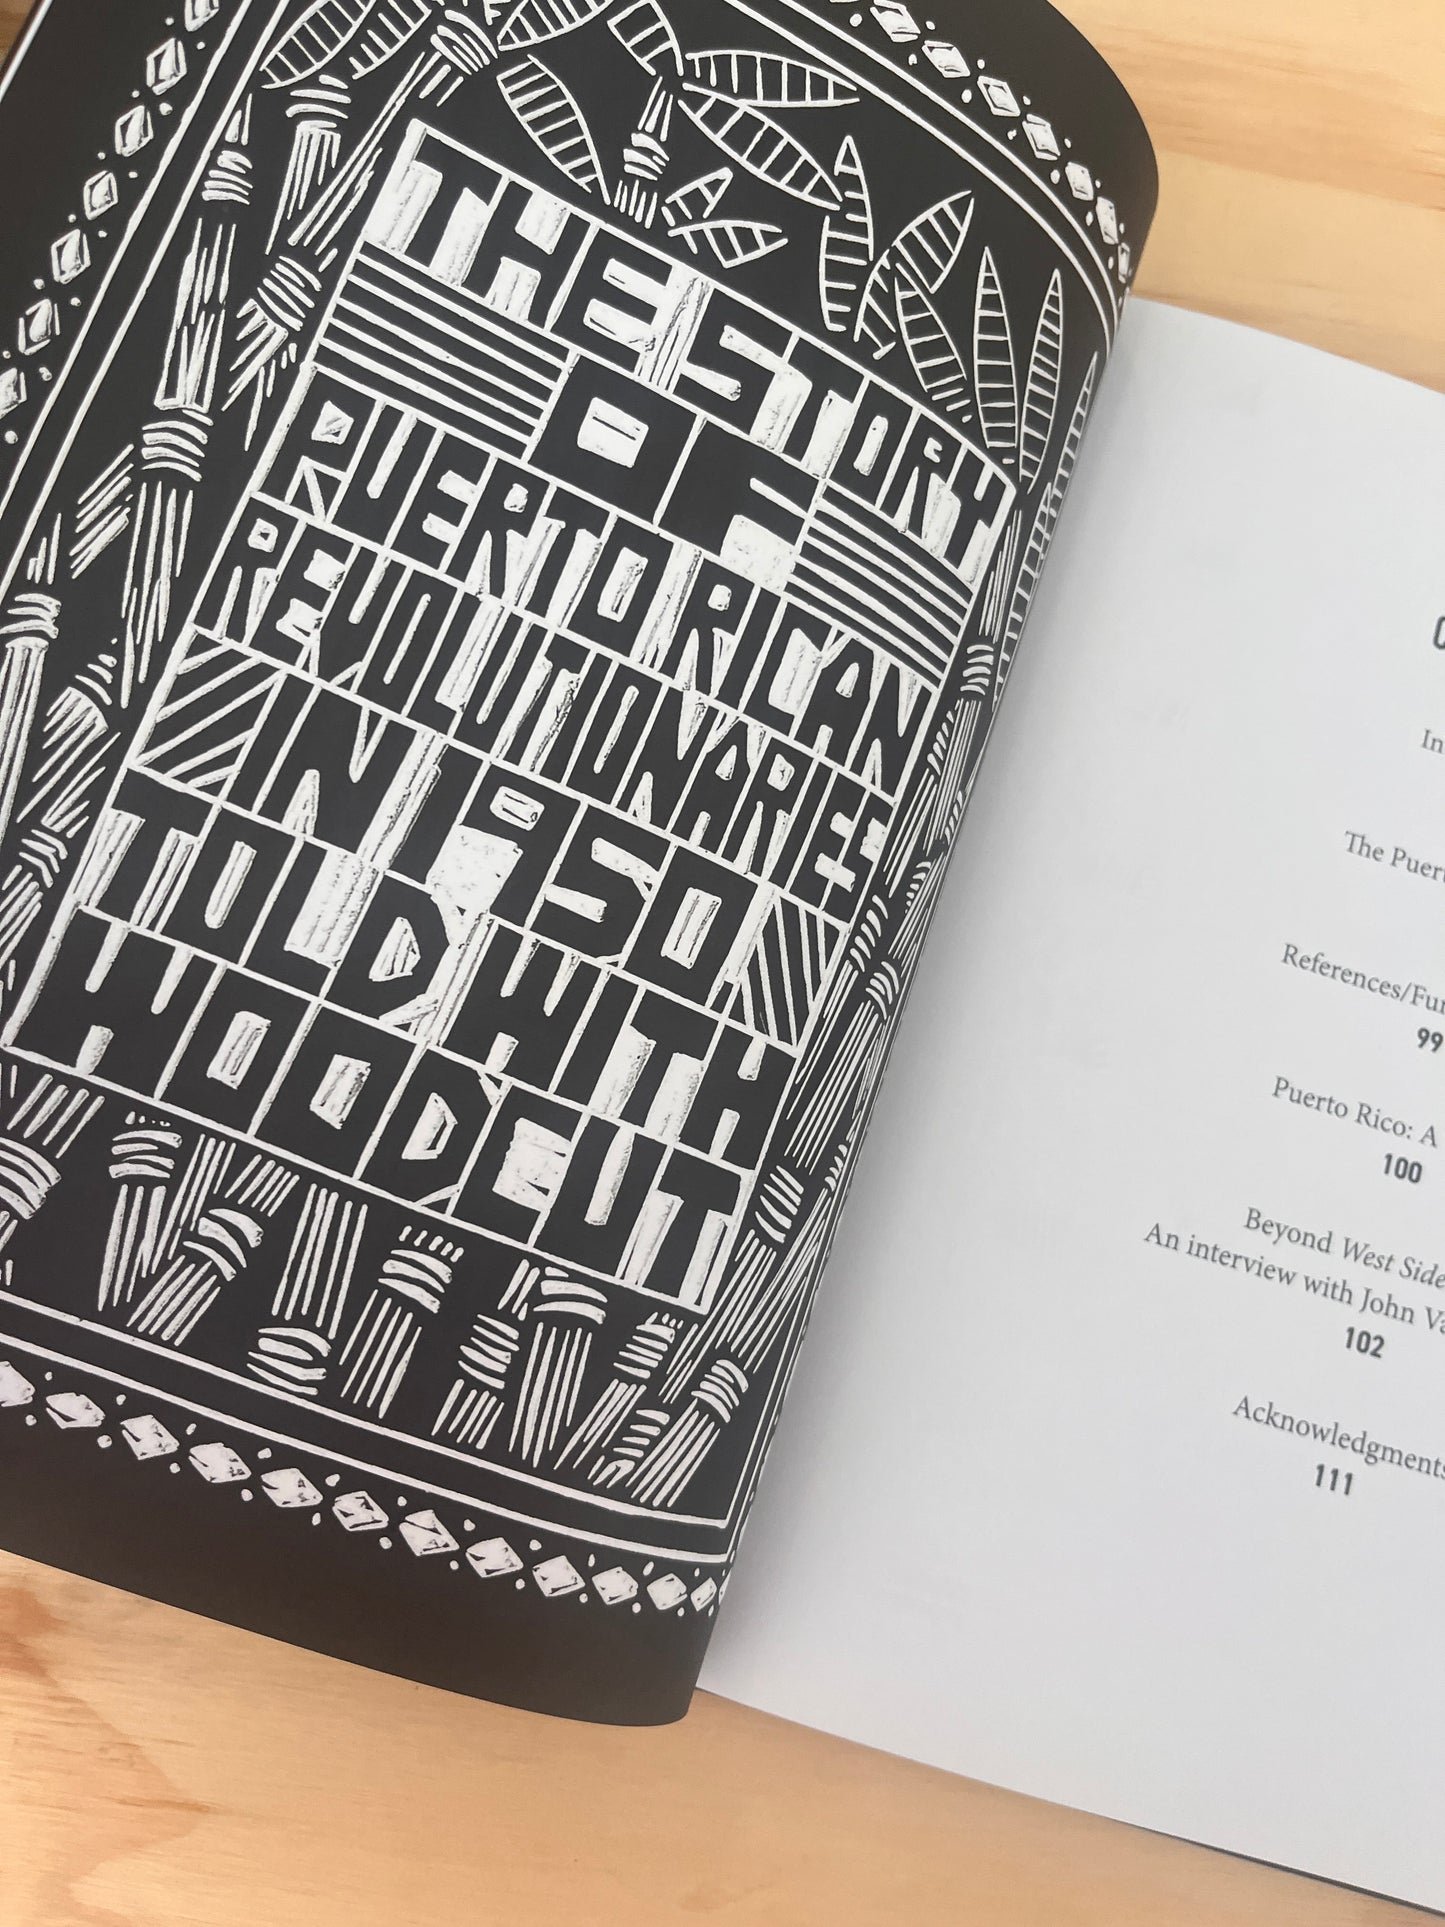 THE STORY
OF
PUERTO RICAN
REVOLUTIONARIES
IN 1950
TOLD WITH
WOODCUT
In
The Puer
References/Fur
99
Puerto Rico: A
100
Beyond West Side
An interview with John Va
102
Acknowledgments
111